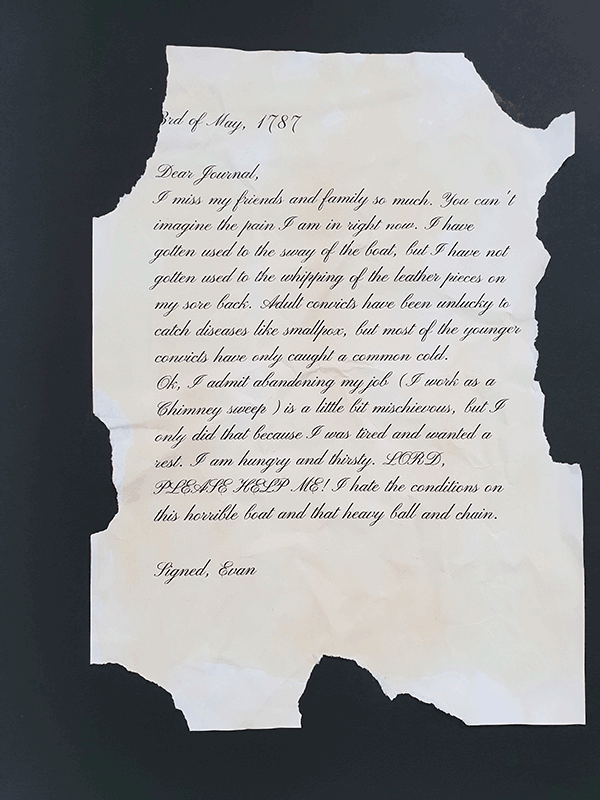 3rd of May, 1787
Dear Journal,
I miss my friends and family so much. You can't
imagine the pain I am in right now. I have
gotten used to the sway of the boat, but I have not
gotten used to the whipping of the leather pieces on
my sore back. Adult convicts have been unlucky to
catch diseases like smallpox, but most of the younger
convicts have only caught a common cold.
Ok, I admit abandoning my job (I work as a
Chimney sweep ) is a little bit mischievous, but I
only did that because I was tired and wanted a
rest. I am hungry and thirsty. LORD,
PLEASE HELP ME! I hate the conditions on
this horrible boat and that heavy ball and chain.
Signed, Evan